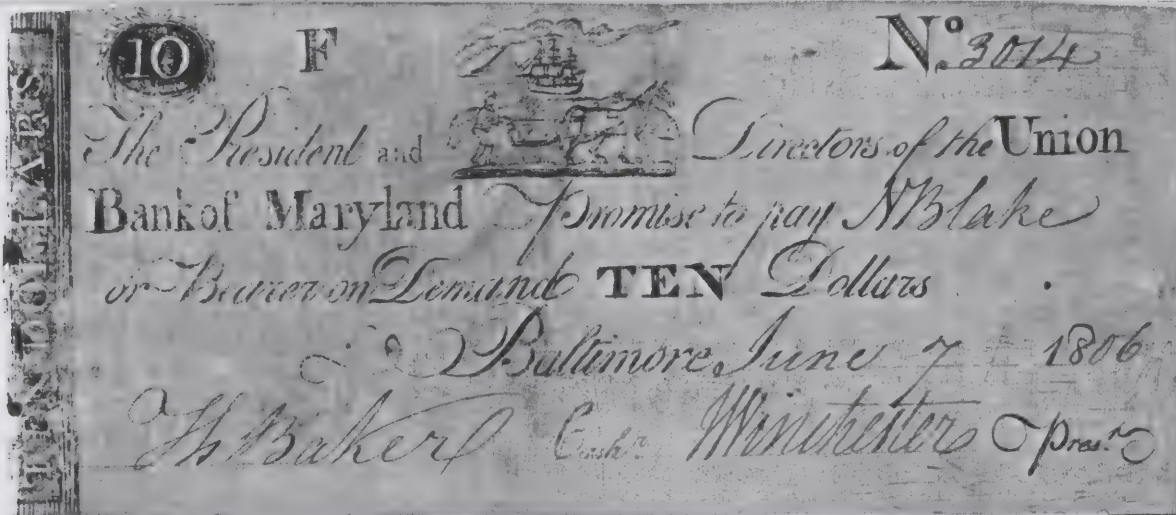 10 F Nº. 3014
The President and Directors of the Union
Bank of Maryland Promise to pay N Blake
or Bearer on Demand TEN Dollars
Baltimore June 7 1806
Th Baker Cashr. WWinchester Presn.
TEN DOLLARS